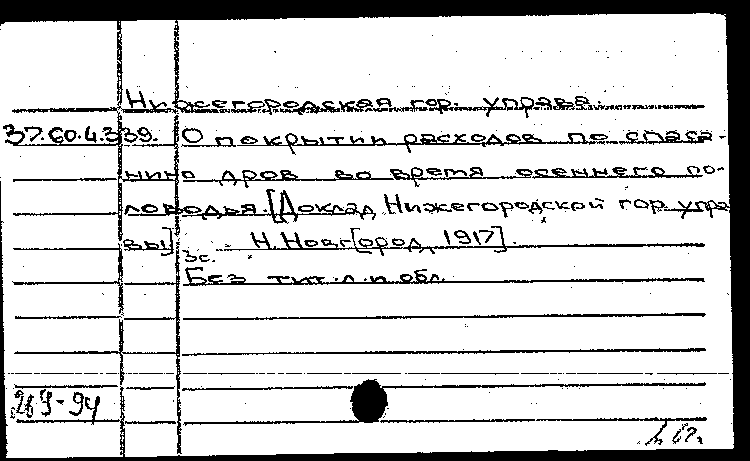 Нижегородская гор. управа.
37.60.4.339. О покрытии расходов по спаса-
нию дров во время осеннего по-
ловодья. [Доклад Нижегородской гор. упра
вы] . - Н. Новг[ород, 1917].
3с.
Без тит. л. и обл.
269-94